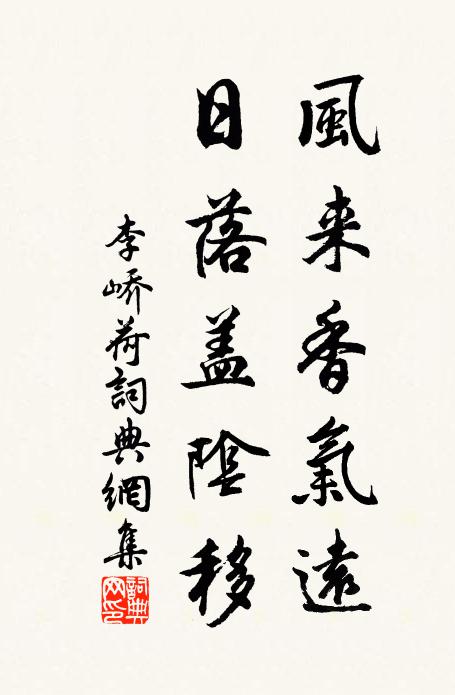 風来香氣遠
日落盖陰移
李嶠荷詞典網集
詞典
网印